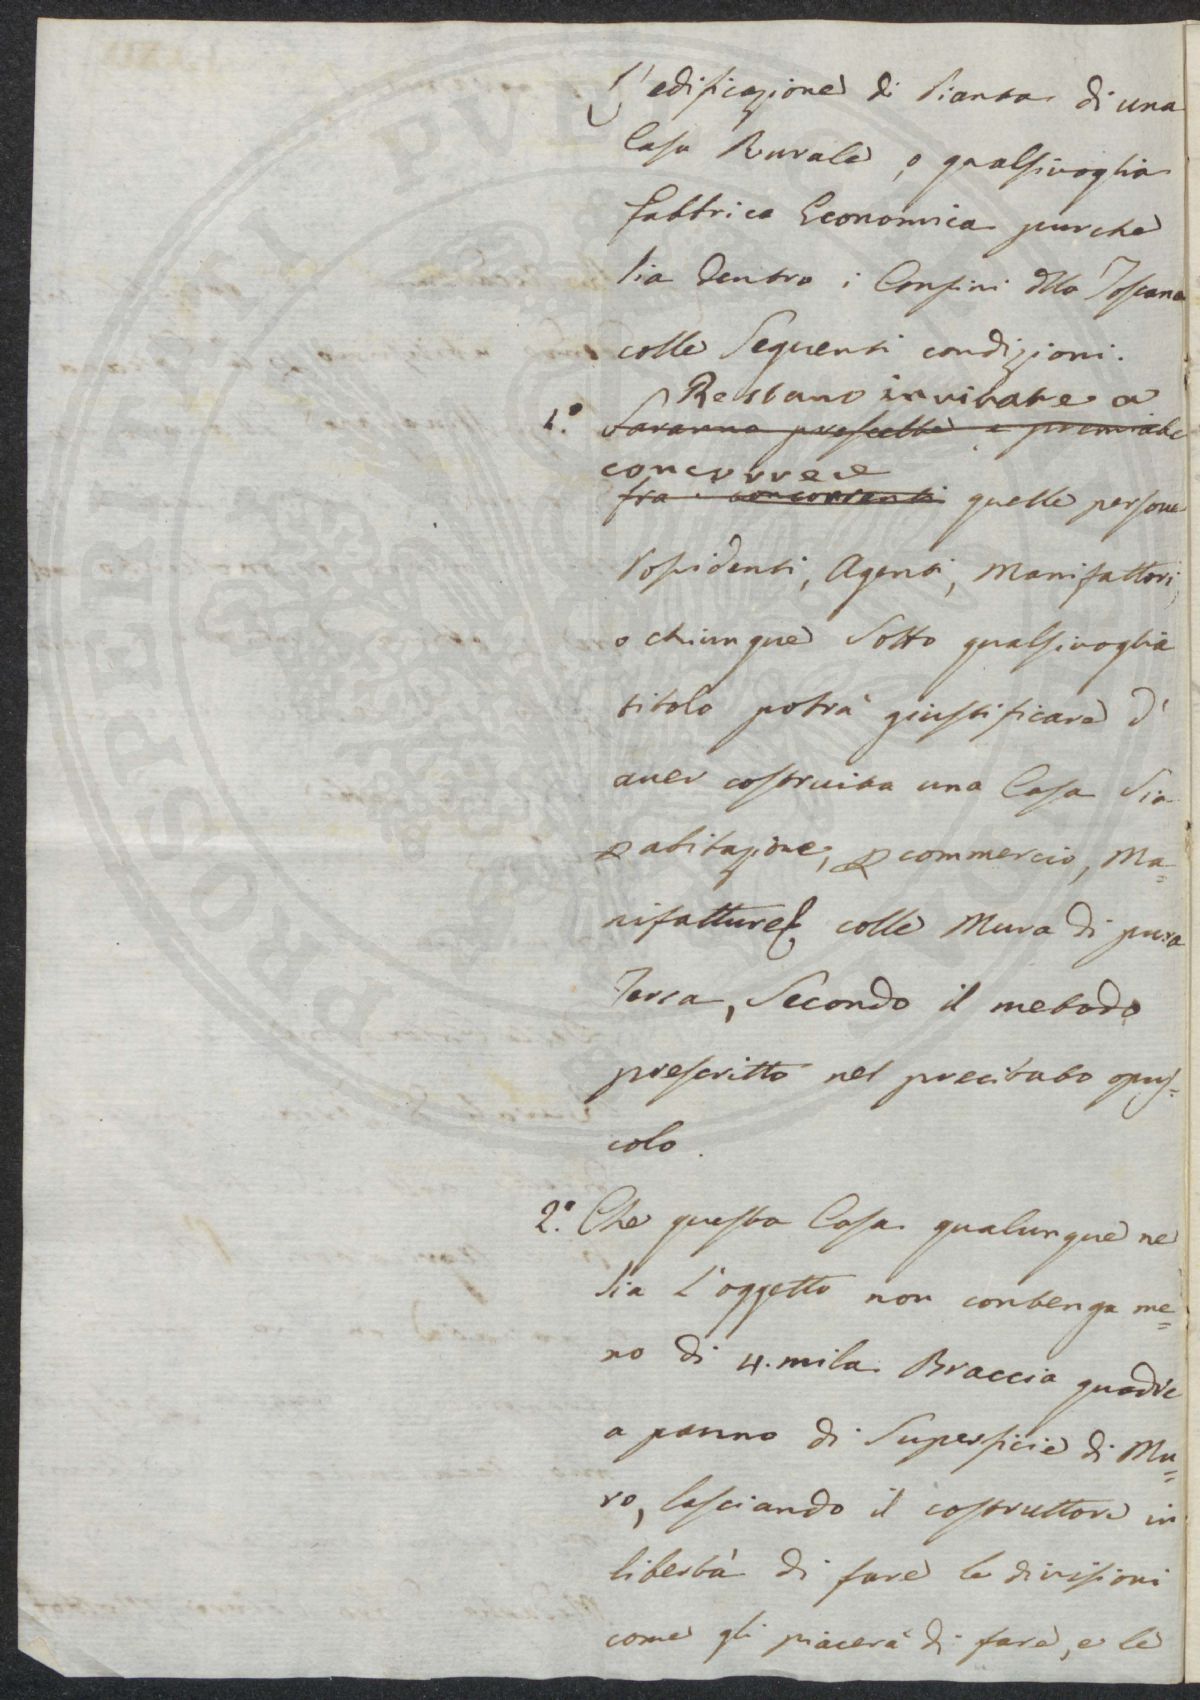 L'edificazione di Pianta di una
Casa Rurale, o qualsivoglia
fabbrica Economica purche
sia dentro i Confini dlla Toscana
colle Seguenti condizioni.
Restano invitate a
1.° Saranno prescelte e premiate
concorrere
fra i concorrenti quelle persone
Possidenti, Agenti, Manifattori,
o chiunque Sotto qualsivoglia
titolo potrà giustificare d'
aver costruita una Casa Sia
p abitazione, p commercio, Ma=
nifatture colle Mura di pura
Terra, Secondo il metodo
prescritto nel precitato opus=
colo.
2.° Che questa Casa qualunque ne
sia l'oggetto non contenga me=
no di 4. mila Braccia quadre
a panno di Superficie di Mu=
ro, lasciando il costruttore in
libertà di fare le divisioni
come gli piacerà di fare, e le
PROSPERITATI PVBLICAE